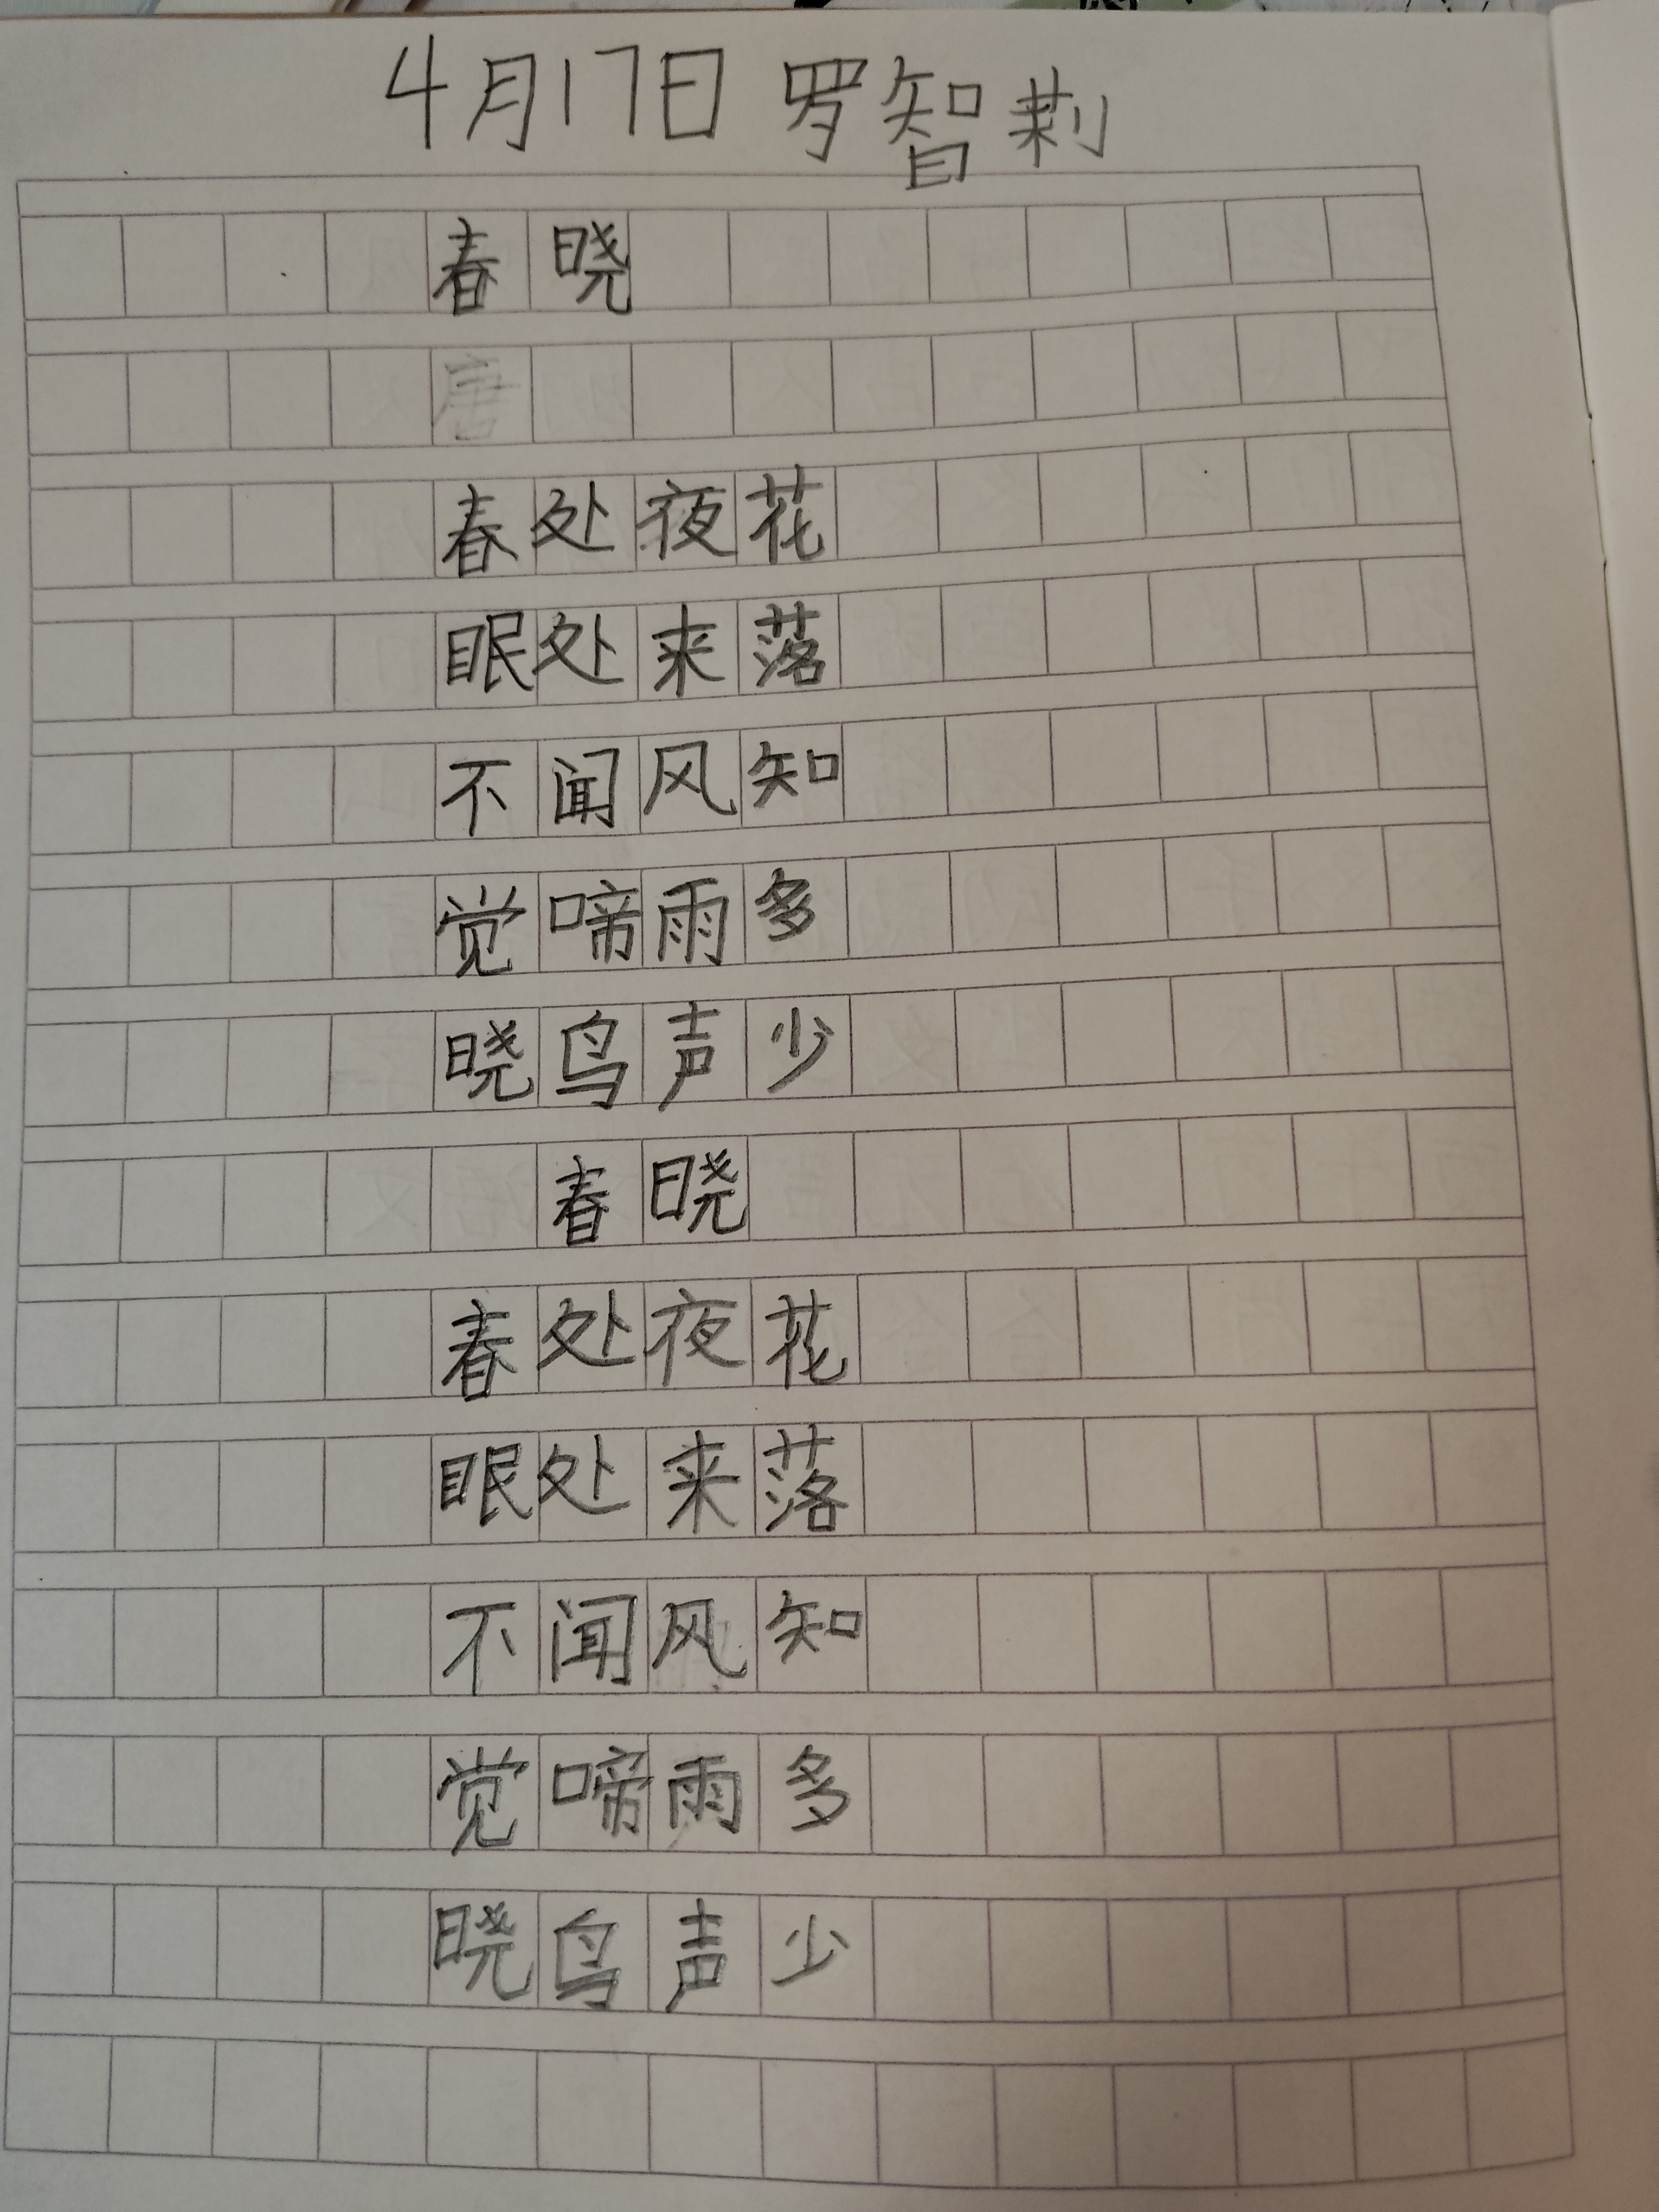 4月17日 罗智莉
春晓
唐
春眠不觉晓
处处闻啼鸟
夜来风雨声
花落知多少
春晓
春眠不觉晓
处处闻啼鸟
夜来风雨声
花落知多少